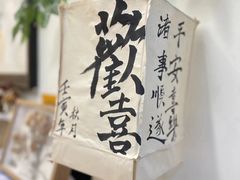 平安喜樂
諸事順遂
歡喜
壬寅年
秋月